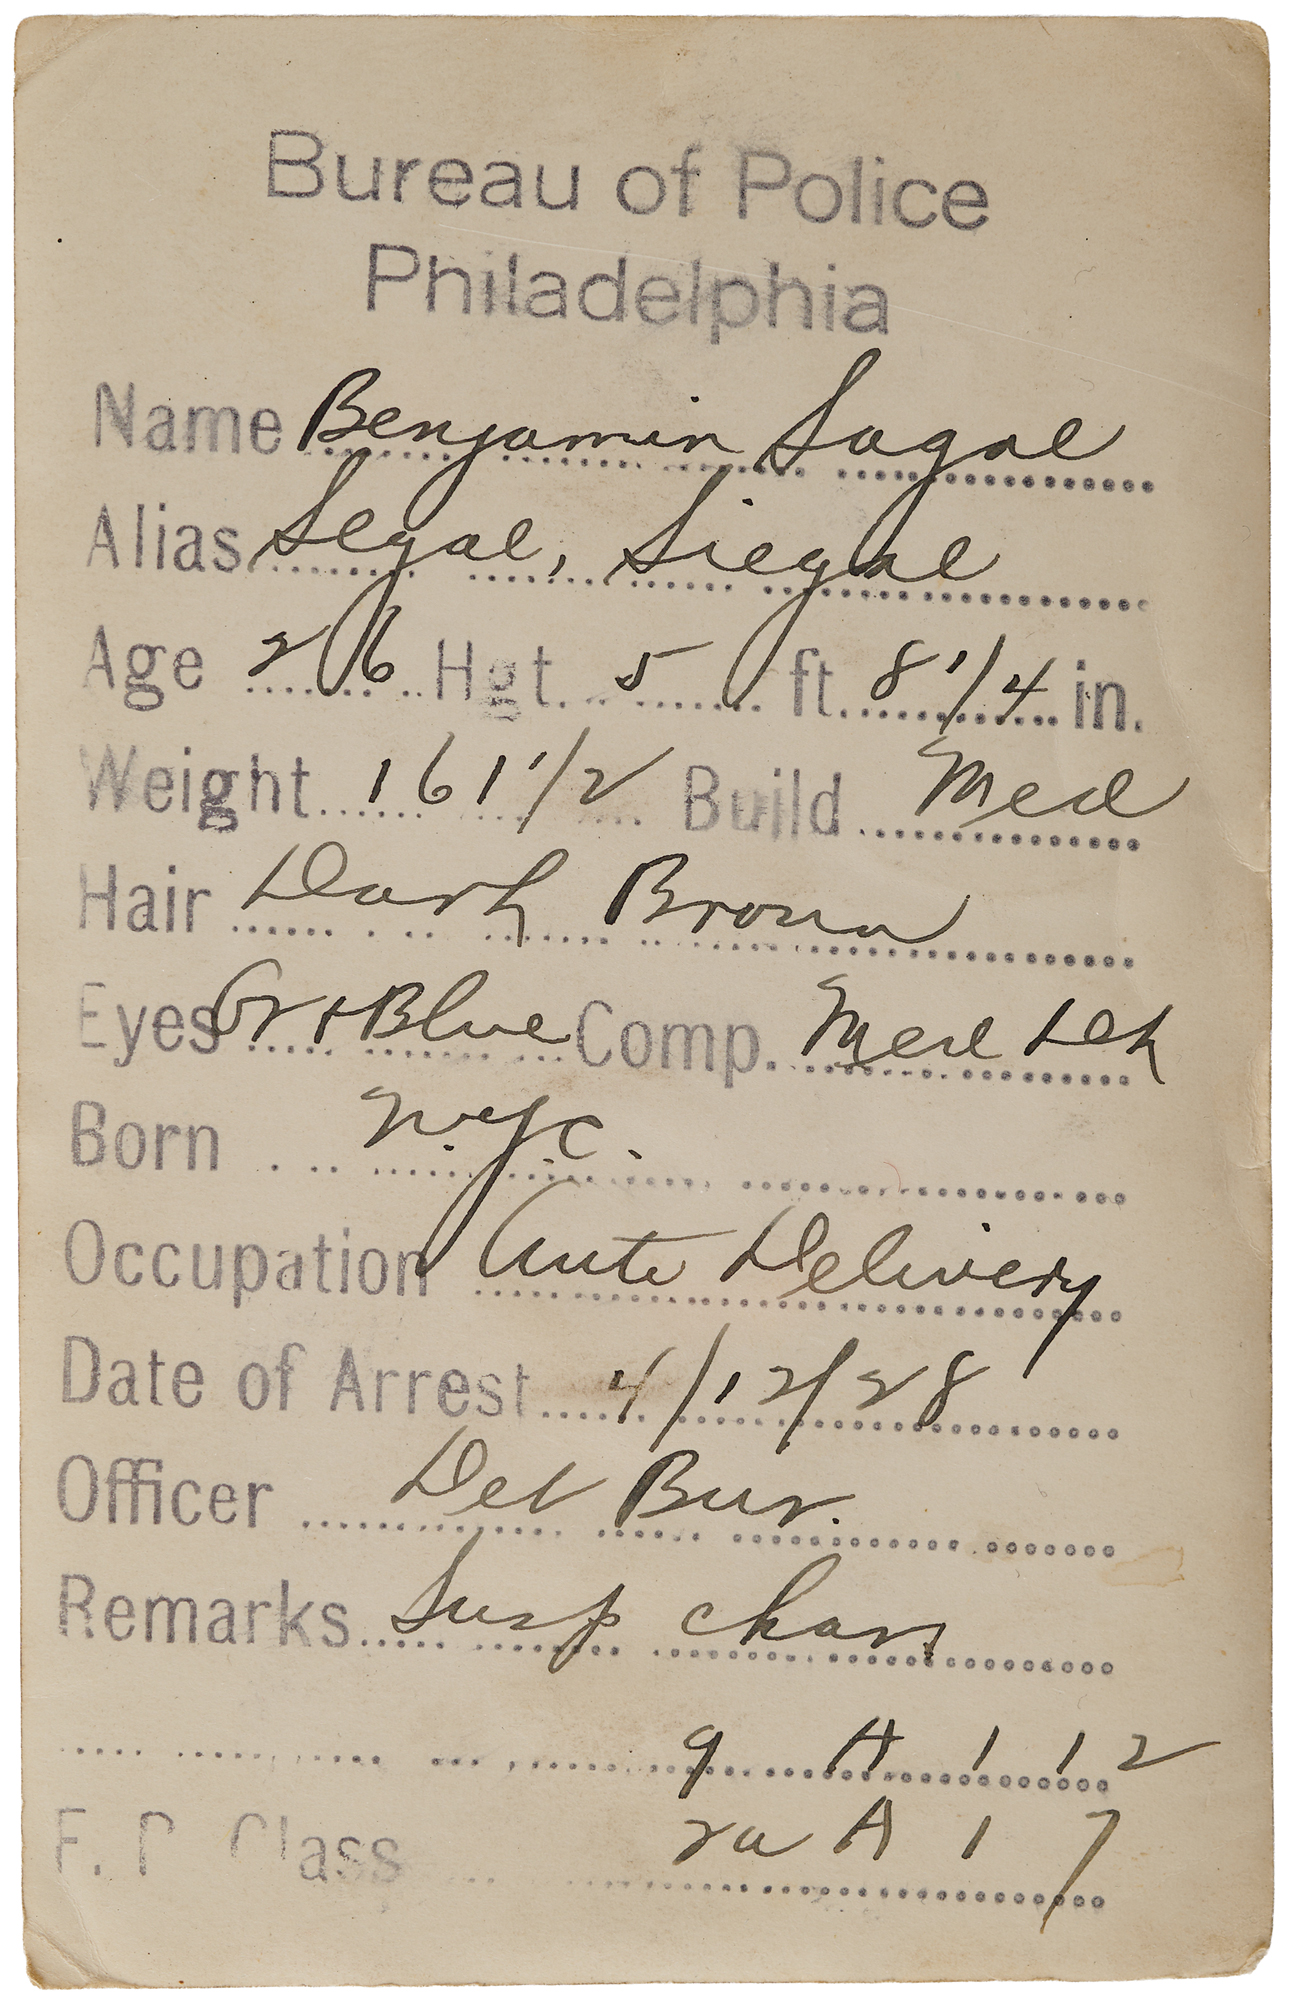 Bureau of Police
Philadelphia
Name Benjamin Sagal
Alias Segal, Siegal
Age 26 Hgt. 5 ft. 8 1/4 in.
Weight 161 1/2 Build Med
Hair Dark Brown
Eyes Gr + Blue Comp. Med Dk
Born N.Y.C.
Occupation Auto Delivery
Date of Arrest 4/12/28
Officer Det Bur.
Remarks Susp Chars
9 A 1 12
F. P. Class A 1 7